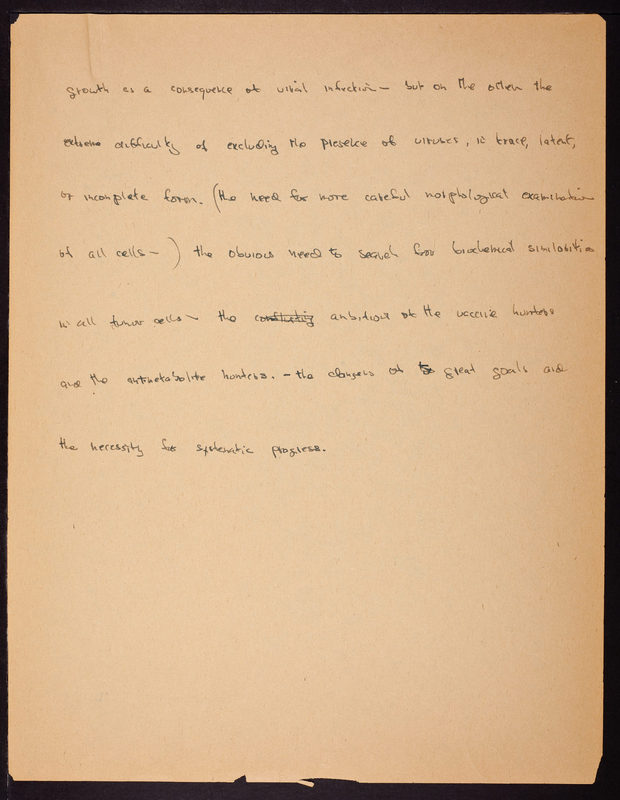 growth as a consequence of viral infection — but on the other the
extreme difficulty of excluding the presence of viruses, in trace, latent,
or incomplete form. (the need for more careful morphological examination
of all cells —) the obvious need to search for biochemical similarities
in all tumor cells — the conflicting ambitions of the vaccine hunters
and the antimetabolite hunters. — the dangers of great goals and
the necessity for systematic progress.